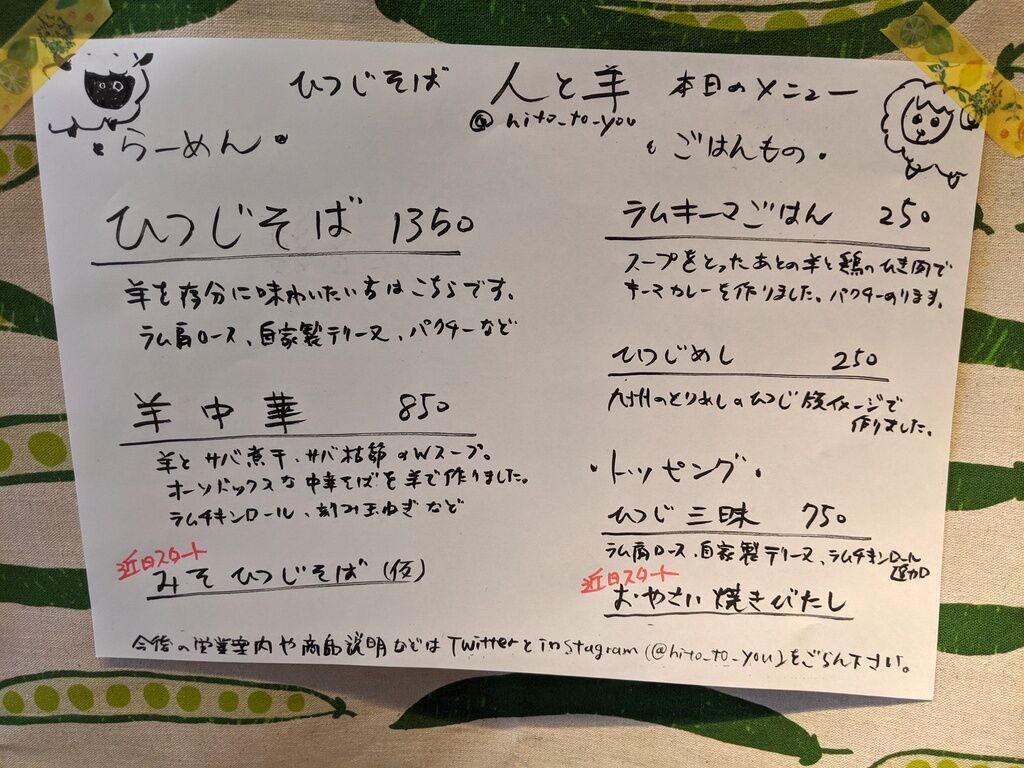 ひつじそば 人と羊 本日のメニュー
@hito_to_you
・らーめん・
ひつじそば 1350
羊を存分に味わいたい方はこちらです。
ラム肩ロース、自家製テリーヌ、パクチーなど
羊中華 850
羊とサバ煮干、サバ枯節のWスープ。
オーソドックスな中華そばを羊で作りました。
ラムチキンロール、刻み玉ねぎなど
近日スタート
みそひつじそば(仮)
・ごはんもの・
ラムキーマごはん 250
スープをとったあとの羊と鶏のひき肉で
キーマカレーを作りました。パクチーのります。
ひつじめし 250
九州のとりめしのひつじ版イメージで
作りました。
・トッピング・
ひつじ三昧 750
ラム肩ロース、自家製テリーヌ、ラムチキンロール
追加
近日スタート
おやさい焼きびたし
今後の営業案内や商品説明などはTwitterとinstagram(@hito_to_you)をごらん下さい。